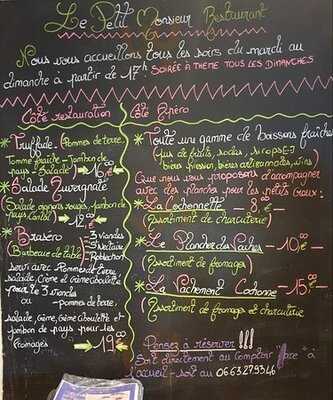 Le Petit Monsieur Restaurant
Nous vous accueillons tous les soirs du mardi au
dimanche a partir de 17h. SOIRÉE A THEME TOUS LES DIMANCHES
Côté restauration
* Truffade (Pommes de terre,
Tomme fraîche - Jambon de
pays - Salade) → 16€00
* Salade Auvergnate
(Salade, oignons rouges, jambon de
pays, Cantal) → 12€00
* Braséro → 3 viandes
(Barbecue de table) → St Nectaire
→ Reblochon
servi avec Pommes de terre,
salade, Crème et crème ciboulette
pour les 3 viandes
ou - pomme de terre,
salade, Crème, Crème ciboulette et
jambon de pays pour les
fromages → 19€00
Côté Apéro
* Toute une gamme de boissons fraîches
(jus de fruits, sodas, sirops...)
bières pression, bières artisanales, vins
Que nous vous proposons d'accompagner
avec des planches pour les petits creux :
* La Cochonnette — 8€00
(assortiment de charcuterie)
* Le Plancher des Vaches — 10€00
(assortiment de fromages)
* La Vachement Cochonne — 15€00
(Assortiment de fromage et charcuterie
Pensez à réserver !!!
Soit directement au Comptoir
l'accueil - soit au 06.63.27.93.46